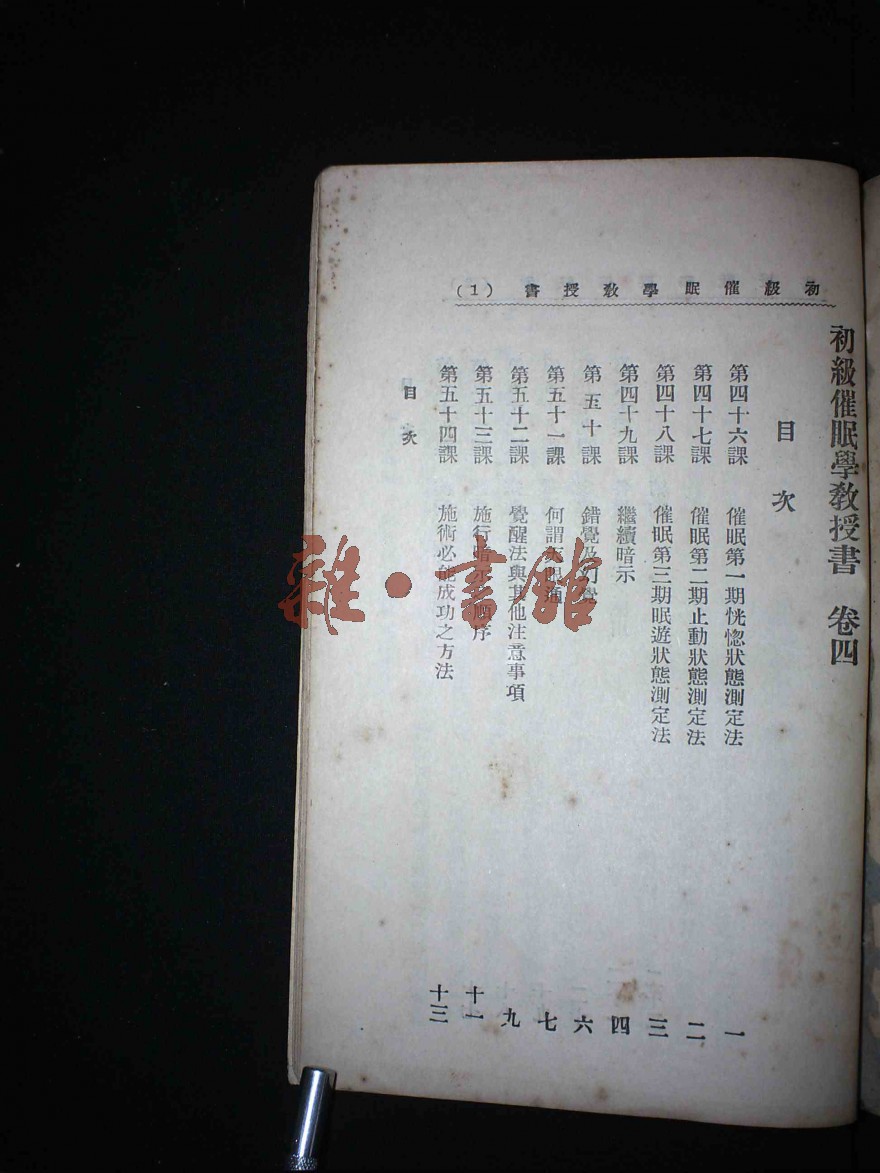 初級催眠學教授書（１）
初級催眠學教授書　卷四
目次
第四十六課　催眠第一期恍惚狀態測定法　一
第四十七課　催眠第二期止動狀態測定法　二
第四十八課　催眠第三期眠遊狀態測定法　三
第四十九課　繼續暗示　四
第五十課　錯覺及幻覺　六
第五十一課　何謂天眼通　七
第五十二課　覺醒法與其他注意事項　九
第五十三課　施行暗示之順序　十一
第五十四課　施術必能成功之方法　十三
目次
雜·書館